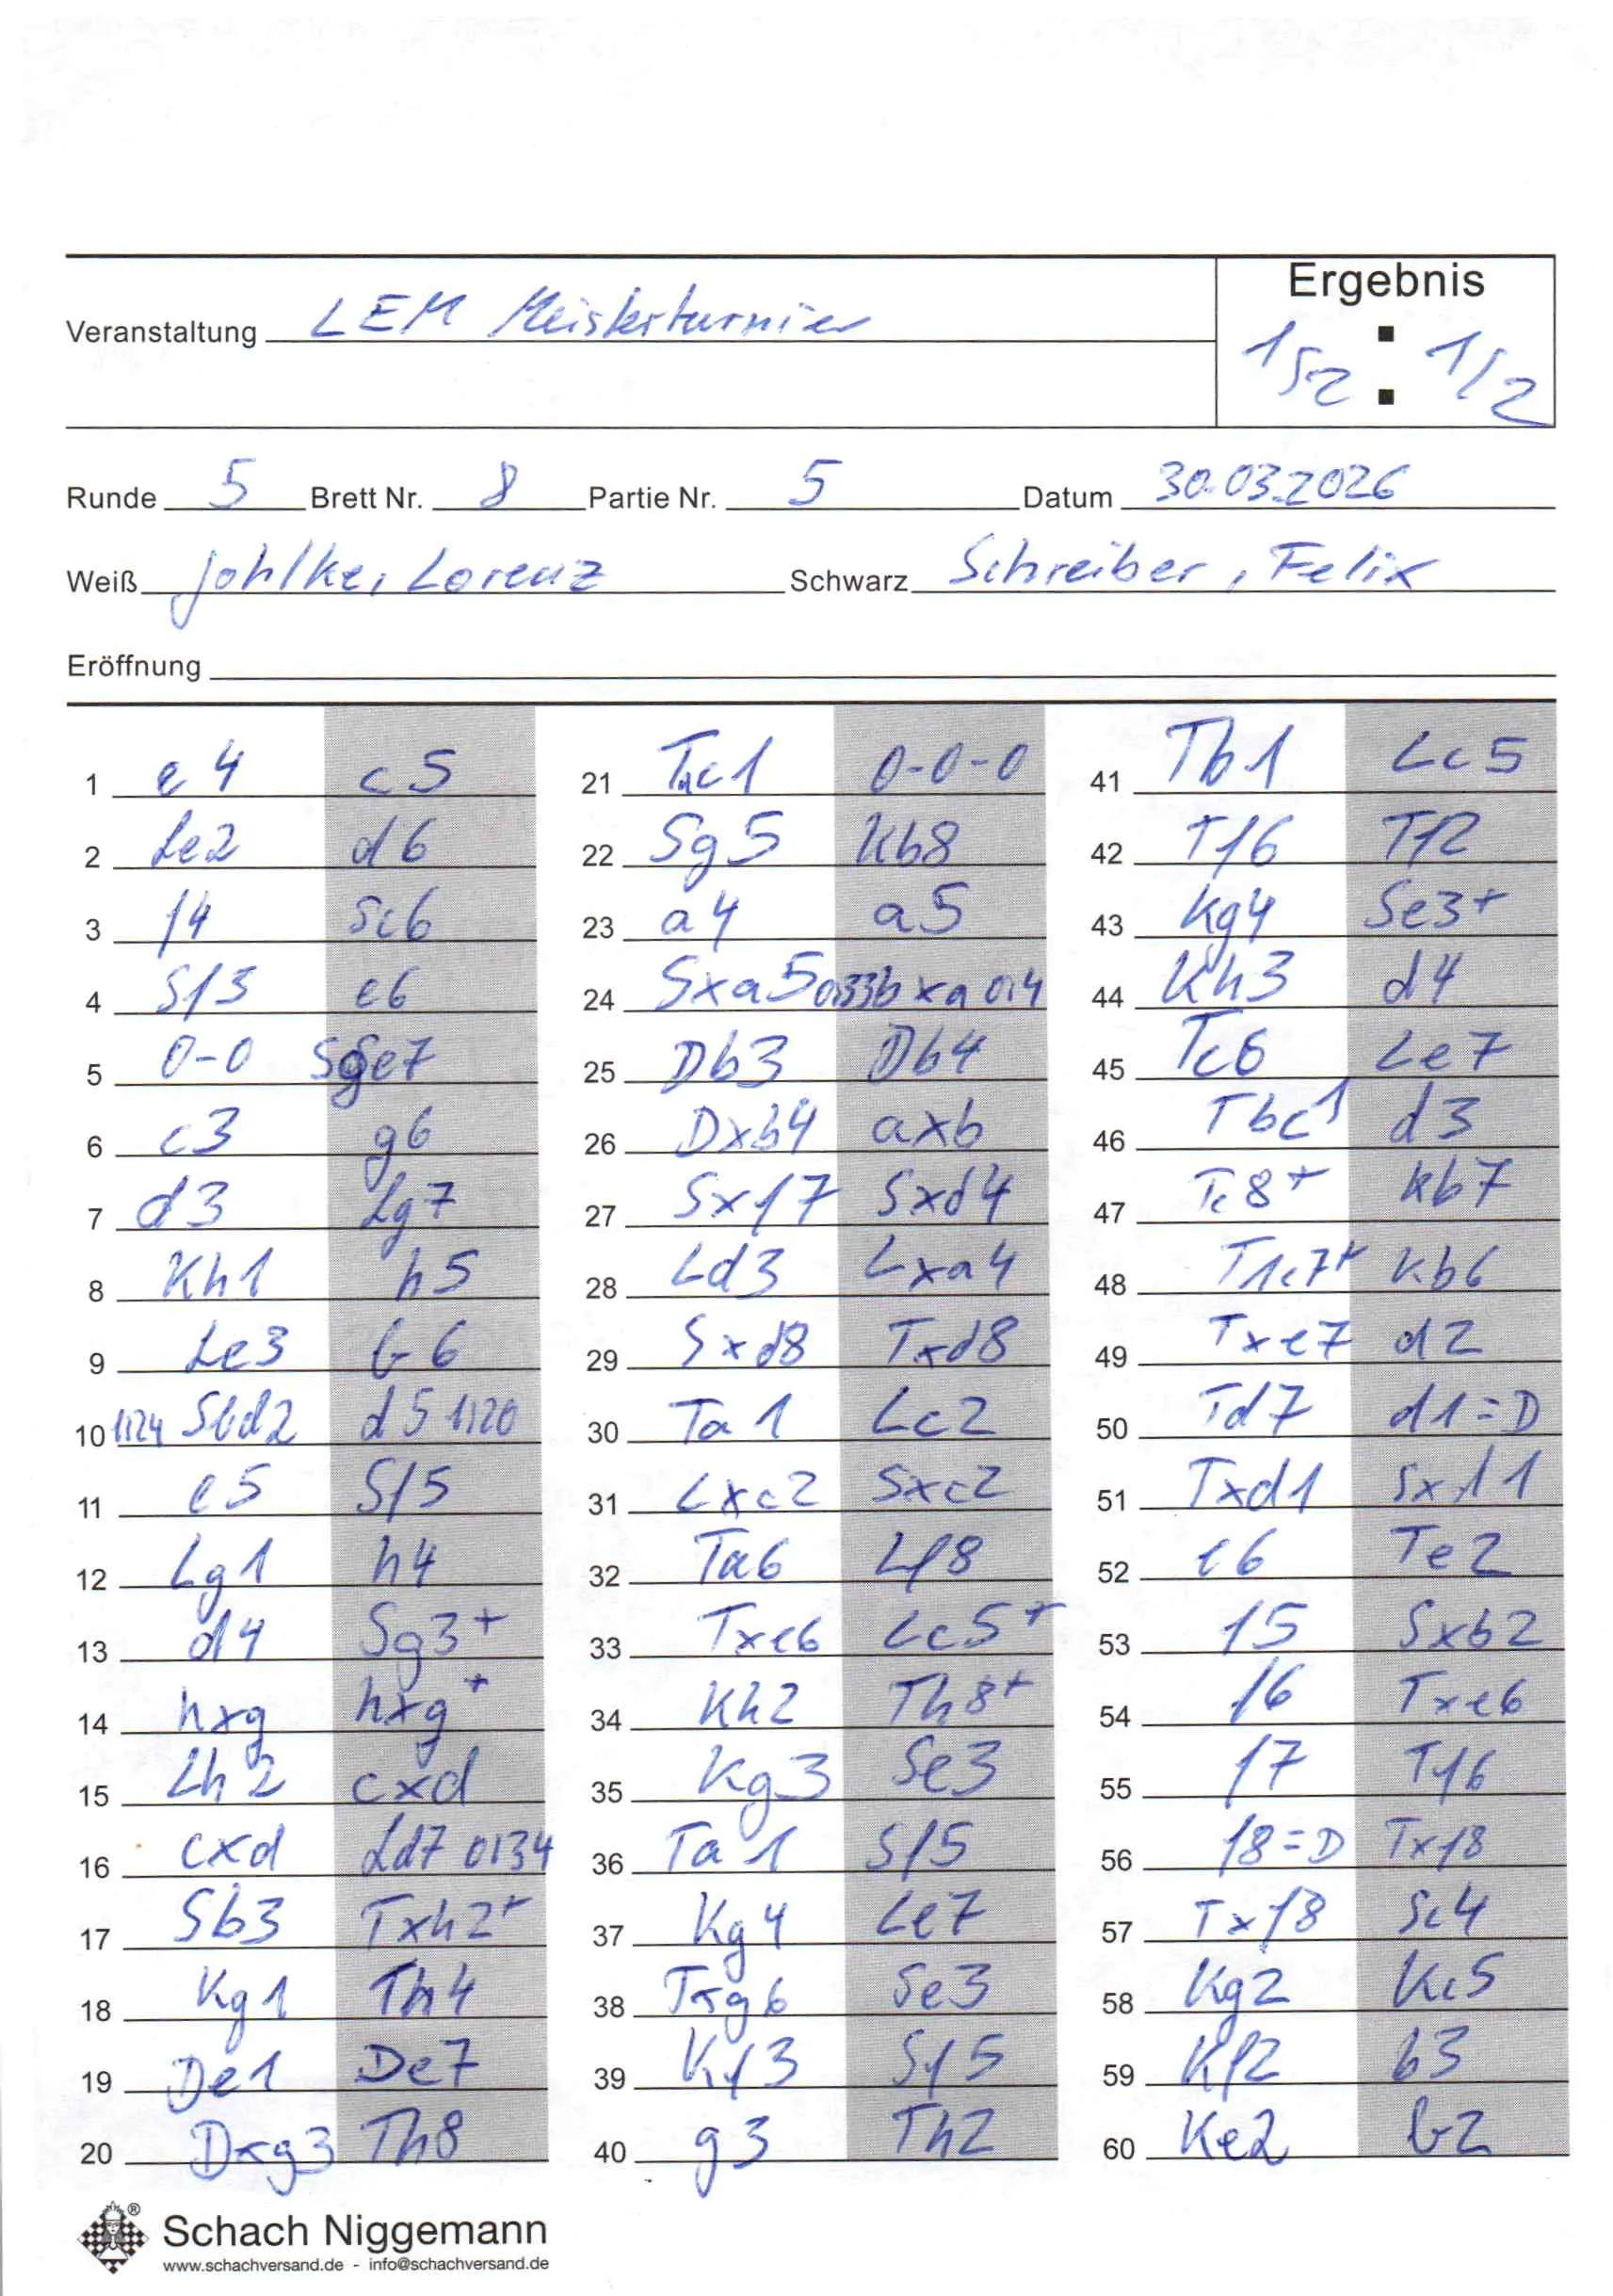 Ergebnis
Veranstaltung LEM Meisterturnier
1/2 : 1/2
Runde 5 Brett Nr. 8 Partie Nr. 5 Datum 30.03.2026
Weiß Johlke, Lorenz Schwarz Schreiber, Felix
Eröffnung
1 e4 c5
2 Le2 d6
3 f4 Sc6
4 Sf3 e6
5 0-0 Sge7
6 c3 g6
7 d3 Lg7
8 Kh1 h5
9 Le3 b6
10 1:24 Sbd2 d5 1:20
11 e5 Sf5
12 Lg1 h4
13 d4 Sg3+
14 hxg hxg+
15 Lh2 cxd
16 cxd Ld7 0:34
17 Sb3 Txh2+
18 Kg1 Th4
19 De1 De7
20 Dxg3 Th8
21 Tac1 0-0-0
22 Sg5 Kb8
23 a4 a5
24 Sxa5 0:33 bxa 0:4
25 Db3 Db4
26 Dxb4 axb
27 Sxf7 Sxd4
28 Ld3 Lxa4
29 Sxd8 Txd8
30 Ta1 Lc2
31 Lxc2 Sxc2
32 Ta6 Lf8
33 Txe6 Lc5+
34 Kh2 Th8+
35 Kg3 Se3
36 Ta1 Sf5
37 Kg4 Le7
38 Txg6 Se3
39 Kf3 Sf5
40 g3 Th2
41 Tb1 Lc5
42 Tf6 Tf2
43 Kg4 Se3+
44 Kh3 d4
45 Tc6 Le7
46 Tbc1 d3
47 Tc8+ Kb7
48 T1c7+ Kb6
49 Txe7 d2
50 Td7 d1=D
51 Txd1 Sxd1
52 e6 Te2
53 f5 Sxb2
54 f6 Txe6
55 f7 Tf6
56 f8=D Txf8
57 Txf8 Sc4
58 Kg2 Kc5
59 Kf2 b3
60 Ke2 b2
Schach Niggemann
www.schachversand.de - info@schachversand.de